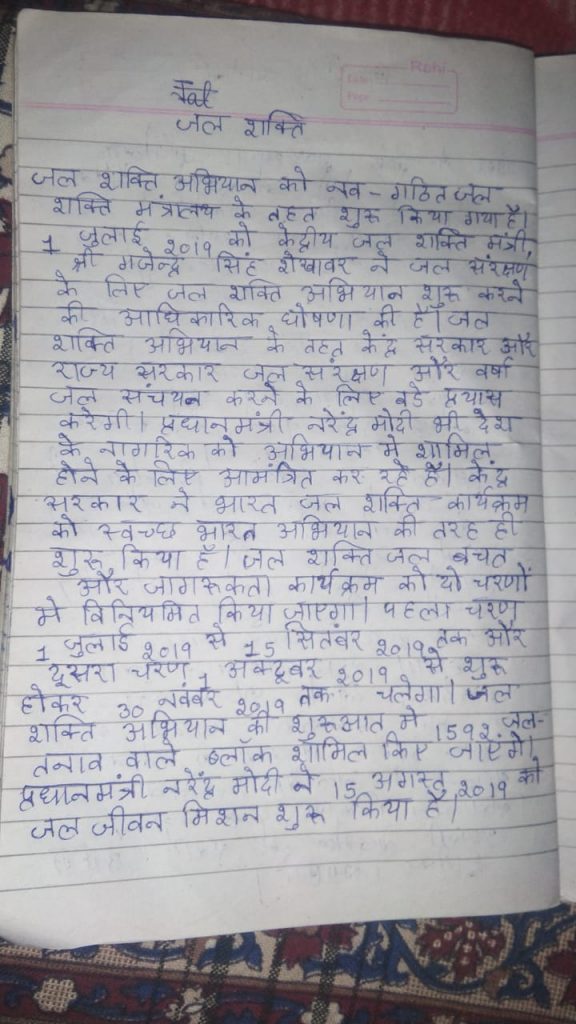 Rohi
जल शक्ति
जल शक्ति अभियान को नव - गठित जल
शक्ति मंत्रालय के तहत शुरू किया गया है।
1 जुलाई 2019 को केंद्रीय जल शक्ति मंत्री,
श्री गजेन्द्र सिंह शेखावर ने जल संरक्षण
के लिए जल शक्ति अभियान शुरू करने
की आधिकारिक घोषणा की है। जल
शक्ति अभियान के तहत केंद्र सरकार और
राज्य सरकार जल संरक्षण और वर्षा
जल संचयन करने के लिए बडे प्रयास
करेगी। प्रधानमंत्री नरेंद्र मोदी भी देश
के नागरिक को अभियान मे शामिल
होने के लिए आमंत्रित कर रहे हैं। केंद्र
सरकार ने भारत जल शक्ति कार्यक्रम
को स्वच्छ भारत अभियान की तरह ही
शुरू किया हैं। जल शक्ति जल बचत
और जागरूकता कार्यक्रम को दो चरणों
मे विनियमित किया जाएगा। पहला चरण
1 जुलाई 2019 से 15 सितंबर 2019 तक और
दूसरा चरण 1 अक्टूबर 2019 से शुरू
होकर 30 नवंबर 2019 तक चलेगा। जल
शक्ति अभियान की शुरूआत मे 1592 जल-
तनाव वाले ब्लॉक शामिल किए जाएंगे।
प्रधानमंत्री नरेंद्र मोदी ने 15 अगस्त 2019 को
जल जीवन मिशन शुरू किया है।